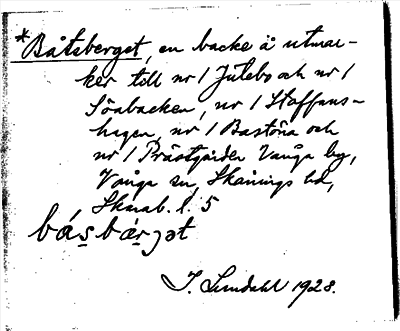 *Båtsberget, en backe å utmar-
ker till nr 1 Julebo och nr 1
Söabacken, nr 1 Staffans-
hagen, nr 1 Bastöna och
nr 1 Prästgården Vånga by,
Vånga sn, Skånings hd,
Skarab. l. 5
básbárjət
J. Lundahl 1928.